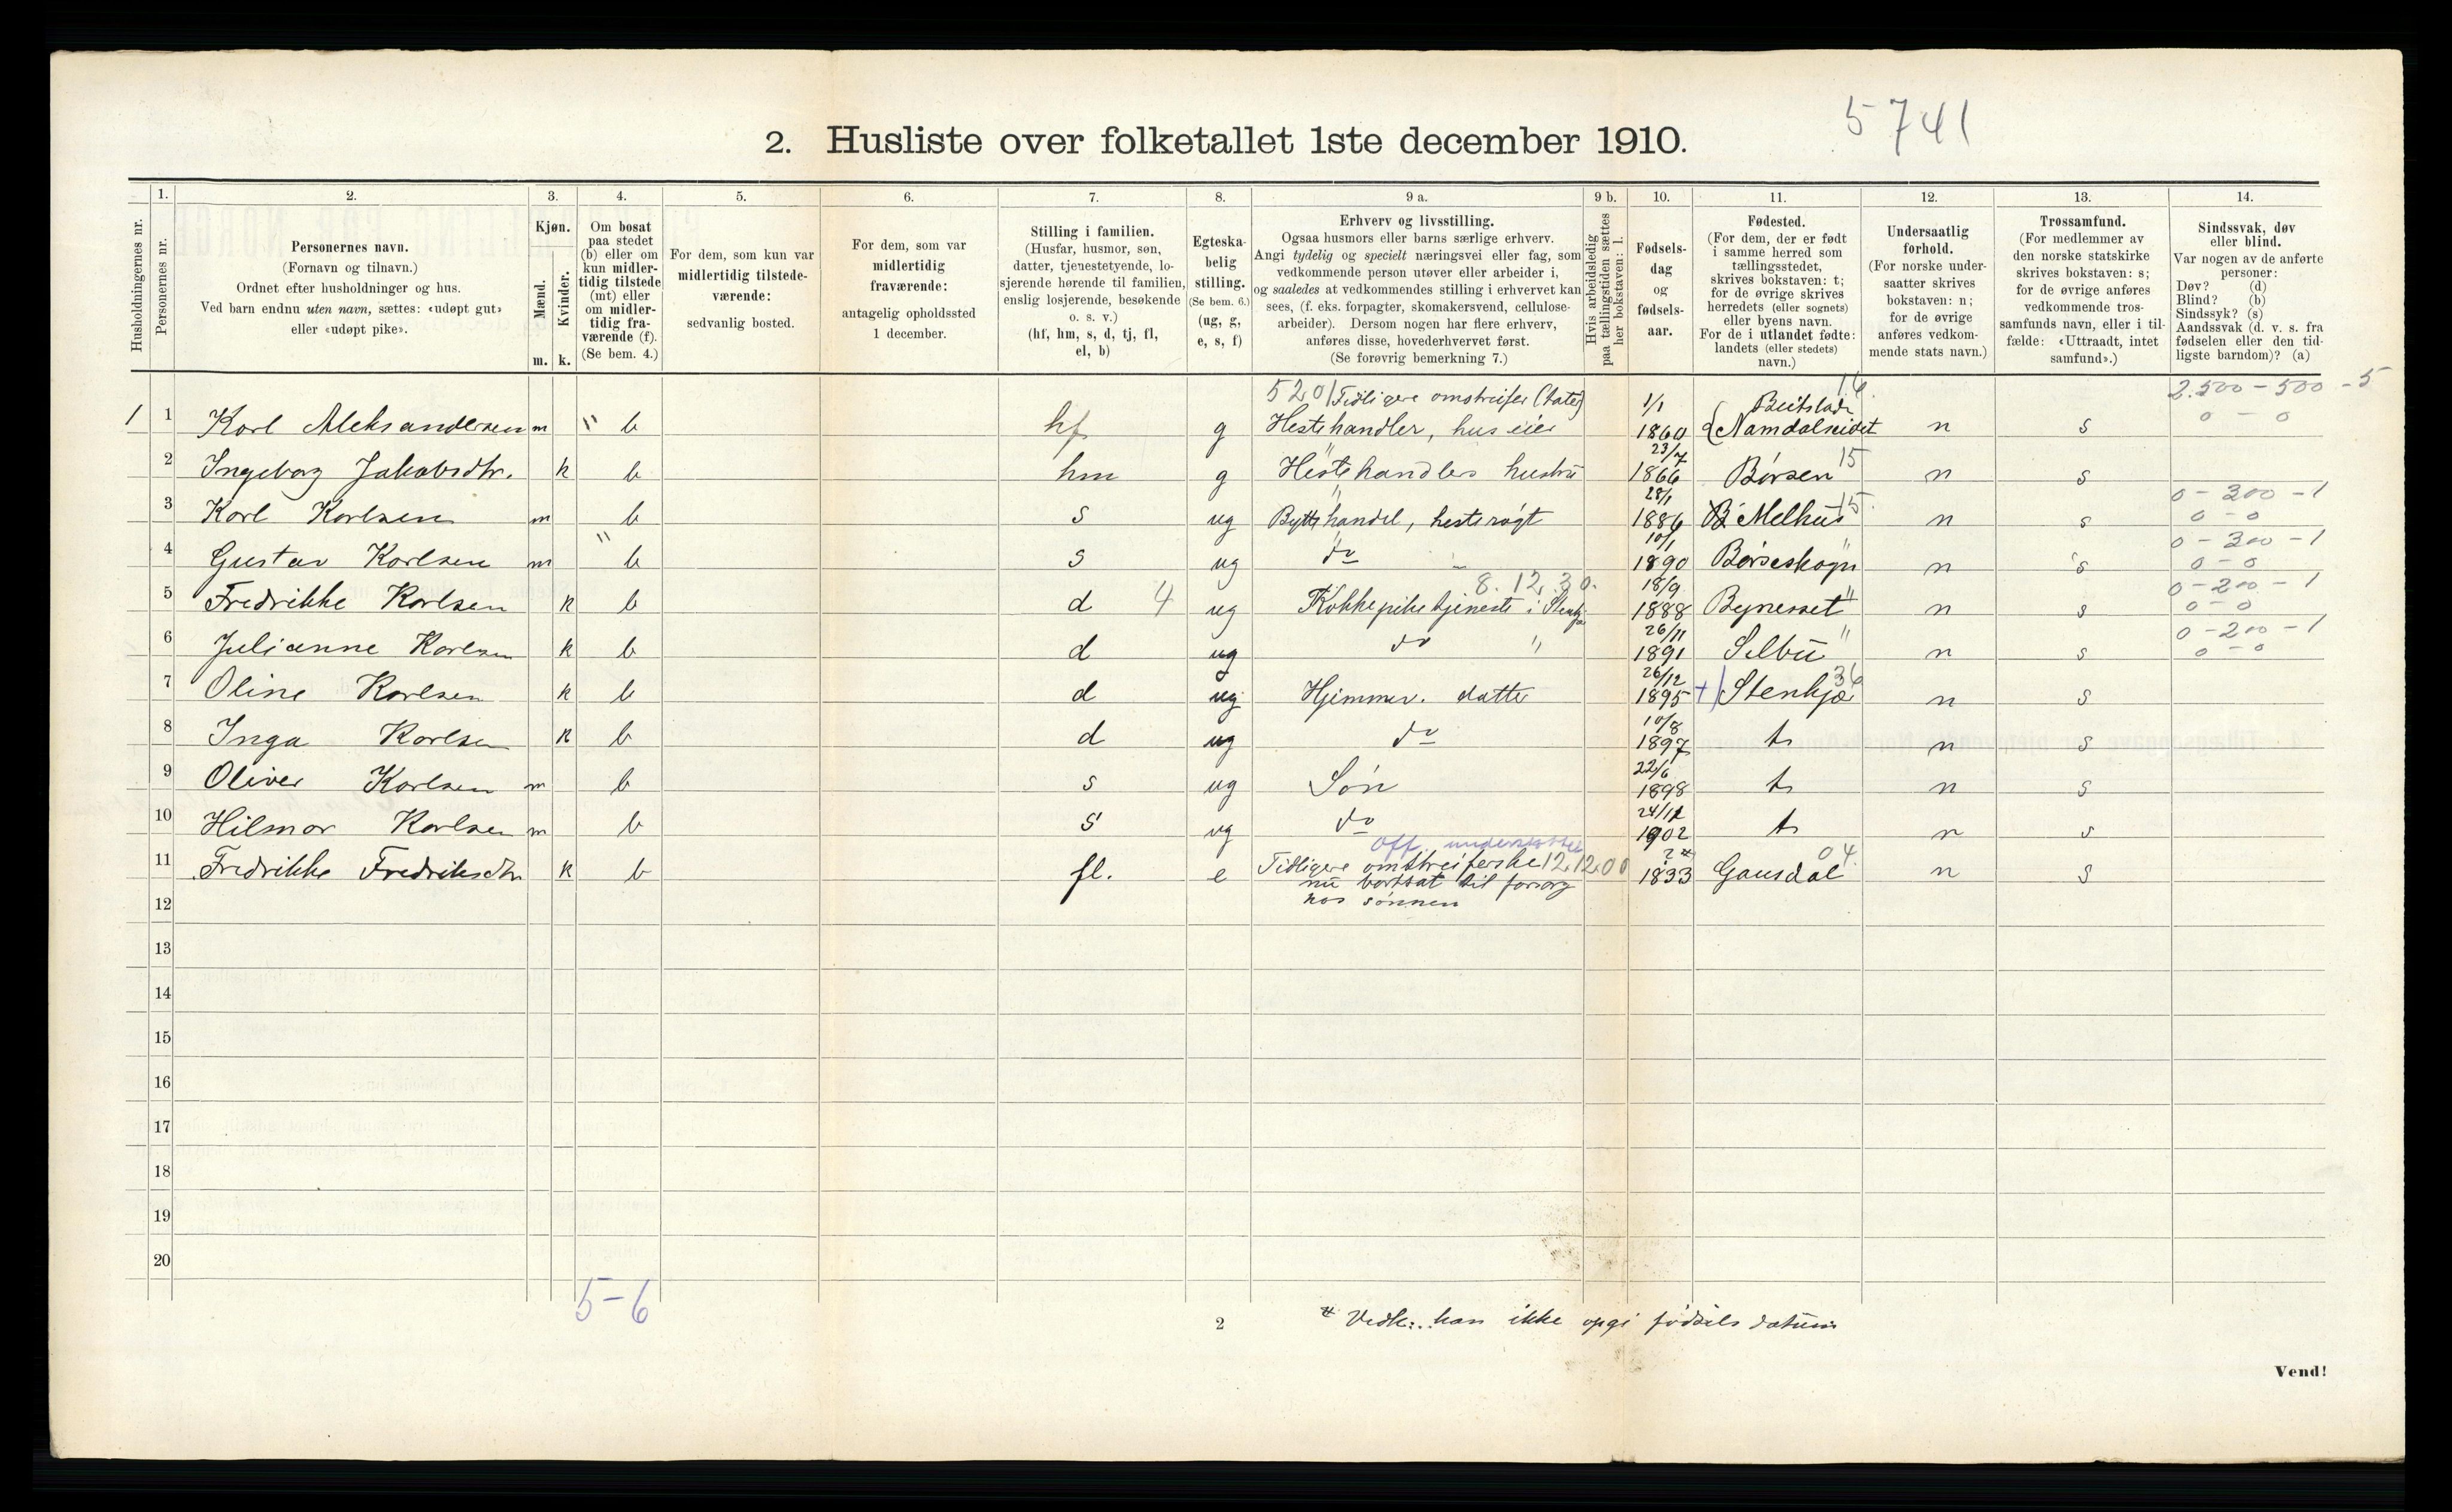 5741
2. Husliste over folketallet 1ste december 1910.
Husholdningernes nr.
1.
Personernes nr.
2.
Personernes navn.
(Fornavn og tilnavn.)
Ordnet efter husholdninger og hus.
Ved barn endnu uten navn, sættes: «udøpt gut»
eller «udøpt pike».
3.
Kjøn.
Mænd.
Kvinder.
m. k.
4.
Om bosat
paa stedet
(b) eller om
kun midler-
tidig tilstede
(mt) eller
om midler-
tidig fra-
værende (f).
(Se bem. 4.)
5.
For dem, som kun var
midlertidig tilstede-
værende:
sedvanlig bosted.
6.
For dem, som var
midlertidig
fraværende:
antagelig opholdssted
1 december.
7.
Stilling i familien.
(Husfar, husmor, søn,
datter, tjenestetyende, lo-
sjerende hørende til familien,
enslig losjerende, besøkende
o. s. v.)
(hf, hm, s, d, tj, fl,
el, b)
8.
Egteska-
belig
stilling.
(Se bem. 6.)
(ug, g,
e, s, f)
9 a.
Erhverv og livsstilling.
Ogsaa husmors eller barns særlige erhverv.
Angi tydelig og specielt næringsvei eller fag, som
vedkommende person utøver eller arbeider i,
og saaledes at vedkommendes stilling i erhvervet kan
sees, (f. eks. forpagter, skomakersvend, cellulose-
arbeider). Dersom nogen har flere erhverv,
anføres disse, hovederhvervet først.
(Se forøvrig bemerkning 7.)
9 b.
Hvis arbeidsledig
paa tællingstiden sættes
her bokstaven: l.
10.
Fødsels-
dag
og
fødsels-
aar.
11.
Fødested.
(For dem, der er født
i samme herred som
tællingsstedet,
skrives bokstaven: t;
for de øvrige skrives
herredets (eller sognets)
eller byens navn.
For de i utlandet fødte:
landets (eller stedets)
navn.)
12.
Undersaatlig
forhold.
(For norske under-
saatter skrives
bokstaven: n;
for de øvrige
anføres vedkom-
mende stats navn.)
13.
Trossamfund.
(For medlemmer av
den norske statskirke
skrives bokstaven: s;
for de øvrige anføres
vedkommende tros-
samfunds navn, eller i til-
fælde: «Uttraadt, intet
samfund».)
14.
Sindssvak, døv
eller blind.
Var nogen av de anførte
personer:
Døv? (d)
Blind? (b)
Sindssyk? (s)
Aandssvak (d. v. s. fra
fødselen eller den tid-
ligste barndom)? (a)
5201 Tidligere omstreifer (tater) 1/1 Beitstad 16 2.500 - 500 - 5
1 1 Karl Aleksandersen m " b hf g Hestehandler, huseier 1860 Namdalseidet n s 0 - 0
2 Ingeborg Jakobsdtr. k b hm g Hestehandlers hustru 23/7 1866 Børsen 15 n s
3 Karl Karlsen m b s ug Byttehandel, hesterøgt 28/1 1886 Melhus 15 n s 0 - 300 - 1 0 - 0
4 Gustav Karlsen m " b s ug do " 10/1 1890 Børseskogn " n s 0 - 300 - 1 0 - 0
5 Fredrikke Karlsen k b d 4 ug Kokkepike tjeneste i Stenkj 8.12.30. 18/9 1888 Bynesset " n s 0 - 200 - 1 0 - 0
6 Julianne Karlsen k b d ug do " 26/11 1891 Selbu " n s 0 - 200 - 1 0 - 0
7 Oline Karlsen k b d ug Hjemmev. datter 26/12 1895 + Stenkjær 36 n s
8 Inga Karlsen k b d ug do 10/8 1897 t n s
9 Oliver Karlsen m b s ug Søn 22/6 1898 t n s
10 Hilmar Karlsen m b s ug do 24/12 1902 t n s
off. understøttet
11 Fredrikke Fredriksdtr k b fl. e Tidligere omstreiferske 12.12.00 ? # 1833 Gausdal 04 n s
nu bortsat til forsorg
hos sønnen
12
13
14
15
16
17
18
19
20
5-6
2
# Vedk: kan ikke opgi fødsels datum
Vend!